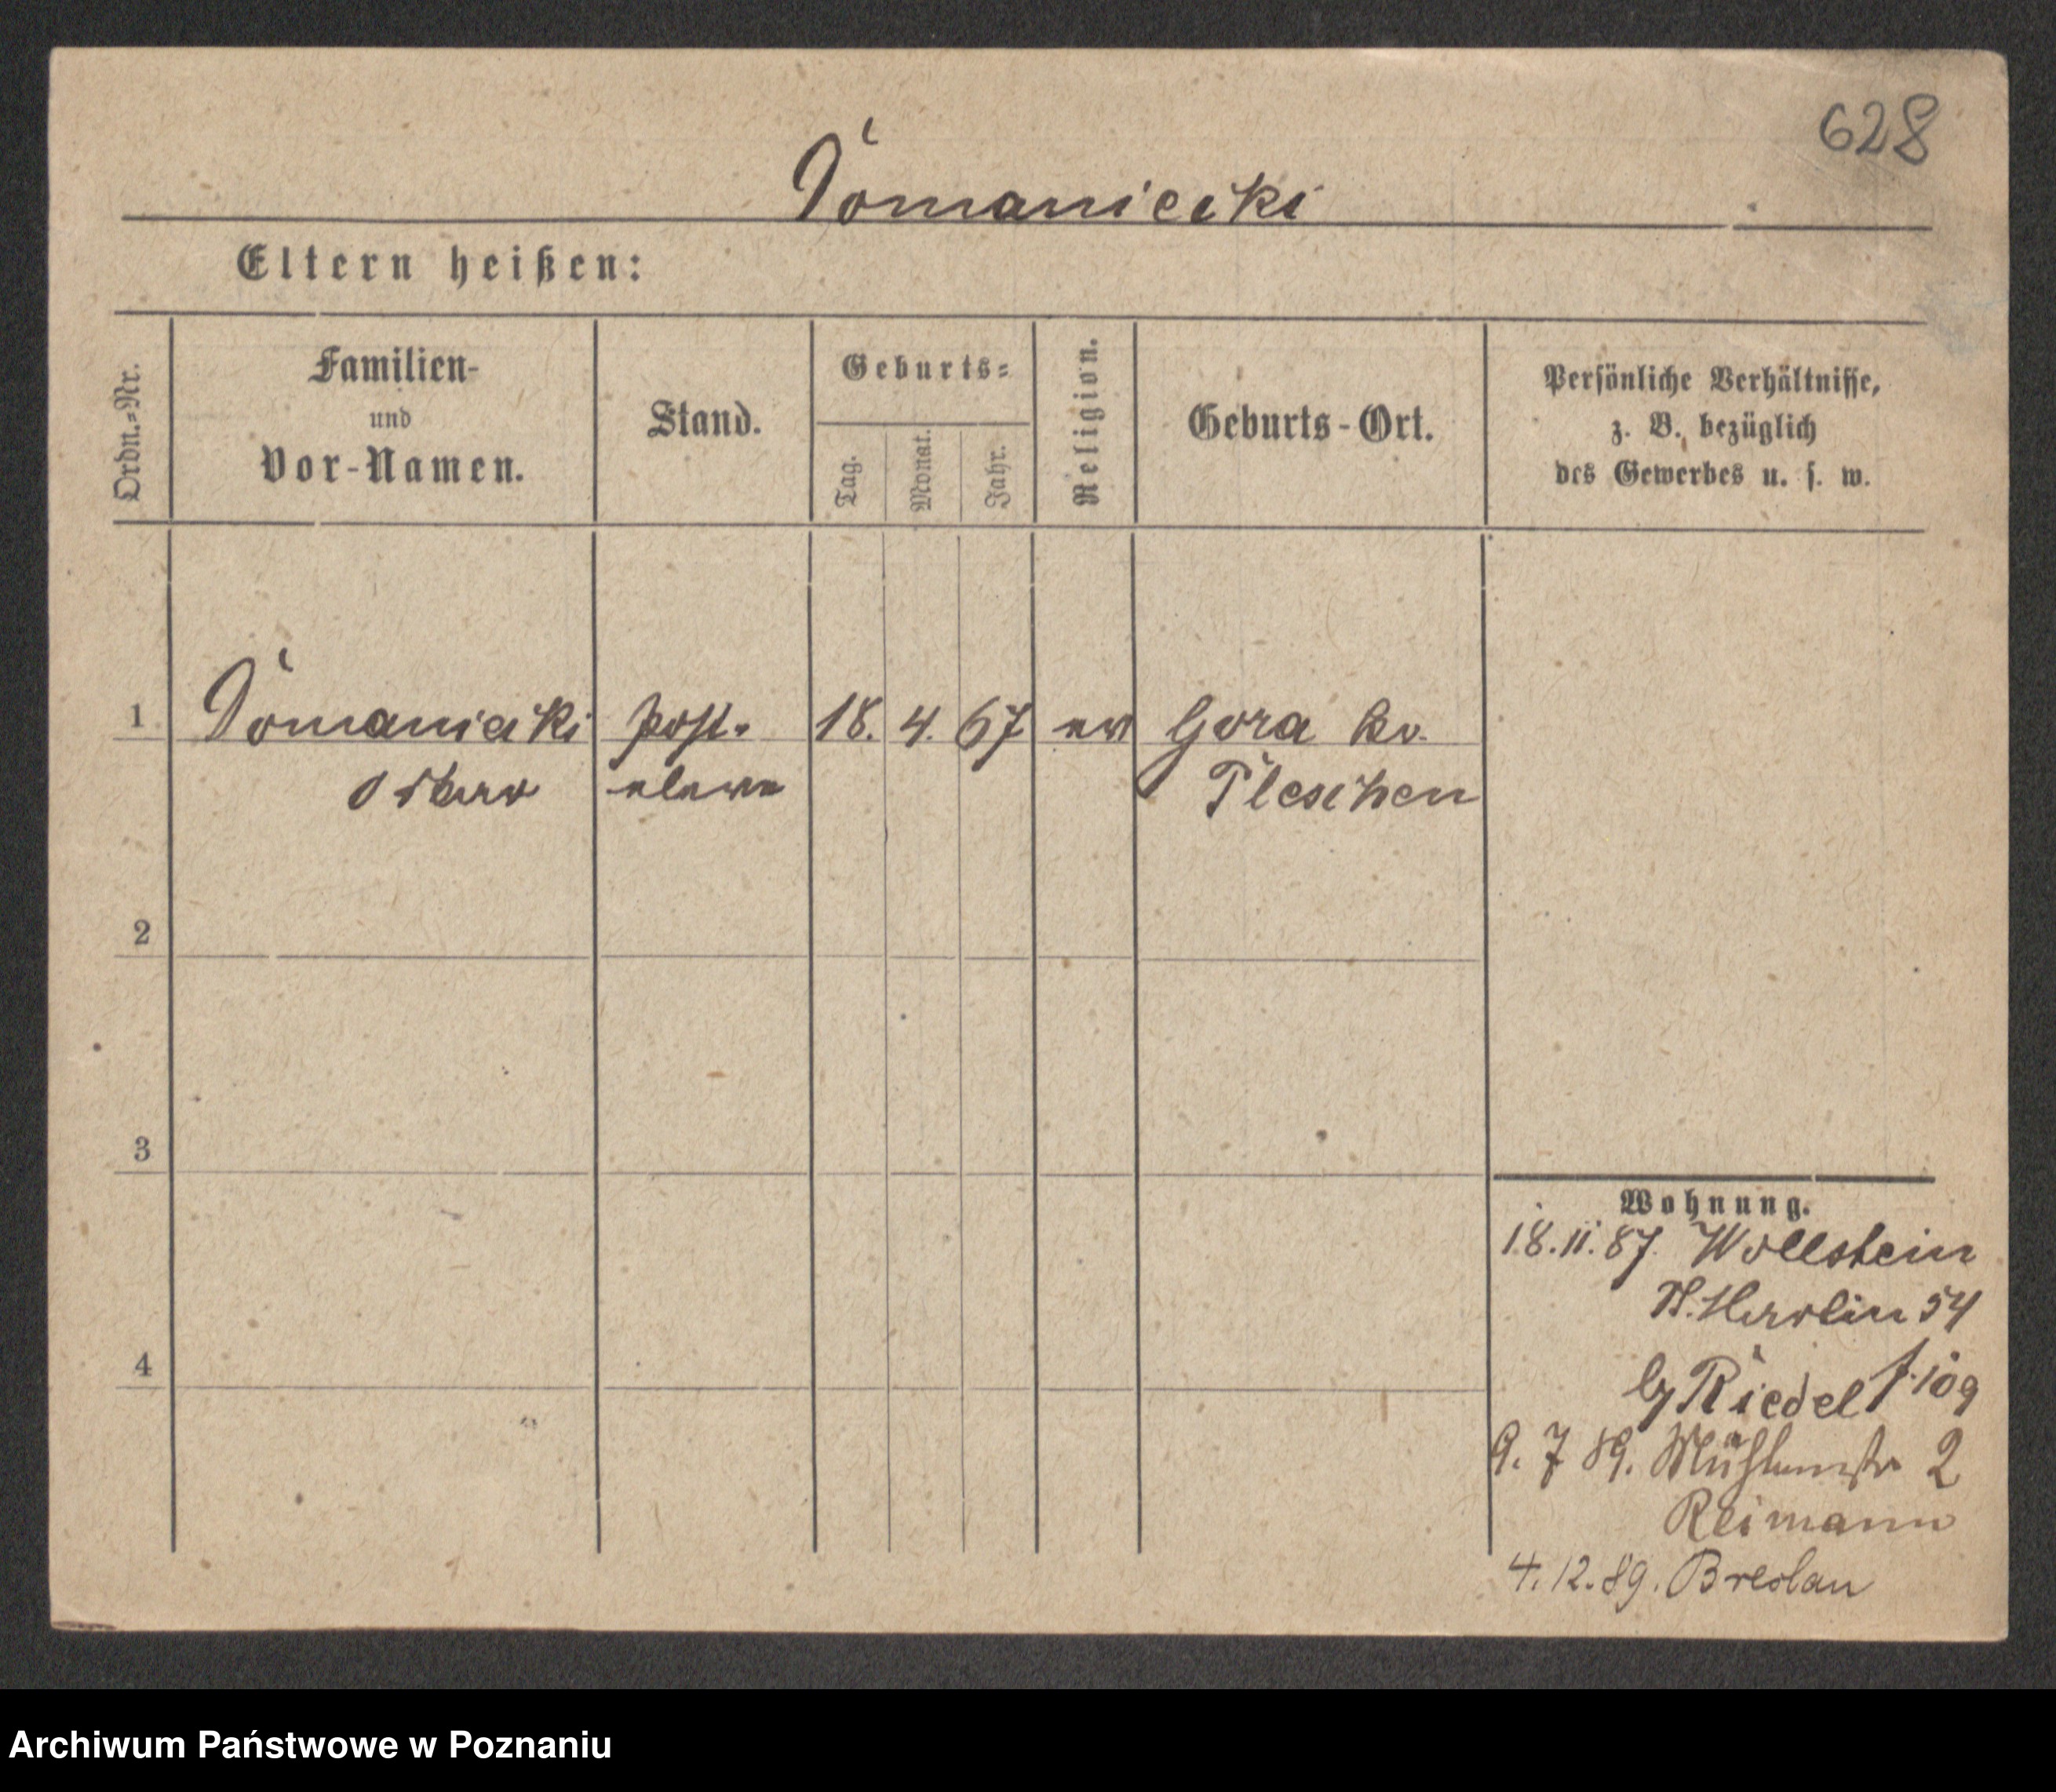 628
Tomaniecki
Eltern heißen:
Ordn.=Nr.
Familien-
und
Vor-Namen.
Stand.
Geburts=
Tag.
Monat.
Jahr.
Religion.
Geburts-Ort.
Persönliche Verhältnisse,
z. B. bezüglich
des Gewerbes u. s. w.
1 Tomaniecki Post- 18. 4. 67 ev Gora Kr.
eleve Pleschen
2
3
4
Wohnung.
18.11.87. Wollstein
54
Riedel
9. 7 89. Mühlenstr 2
Reimann
4.12.89. Breslau
Archiwum Państwowe w Poznaniu